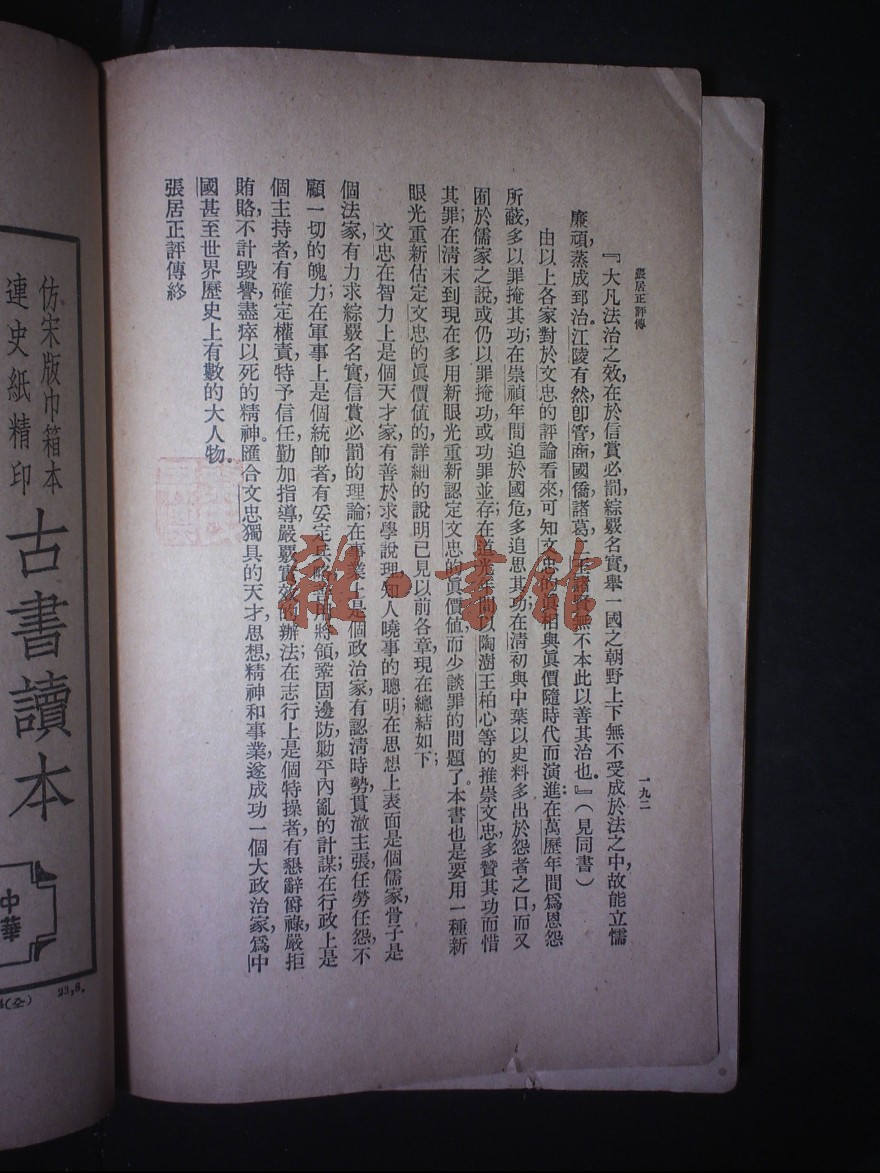 張居正評傳
一九二
『大凡法治之效，在於信賞必罰，綜覈名實，舉一國之朝野上下，無不受成於法之中，故能立懦
廉頑，蒸成郅治。江陵有然，卽管，商，國僑，諸葛，王諸賢，無不本此以善其治也。』（見同書）
由以上各家對於文忠的評論看來，可知文忠的眞相與眞價隨時代而演進：在萬歷年間爲恩怨
所蔽，多以罪掩其功；在崇禎年間迫於國危，多追思其功；在淸初與中葉以史料多出於怨者之口，而又
囿於儒家之說，或仍以罪掩功，或功罪並存；在道光年間以陶澍王柏心等的推崇文忠，多贊其功而惜
其罪；在淸末到現在多用新眼光重新認定文忠的眞價值，而少談罪的問題了。本書也是要用一種新
眼光重新估定文忠的眞價值的，詳細的說明已見以前各章，現在總結如下：
文忠在智力上是個天才家，有善於求學說理，知人曉事的聰明；在思想上表面是個儒家，骨子是
個法家，有力求綜覈名實，信賞必罰的理論；在事業上是個政治家，有認淸時勢，貫澈主張，任勞任怨，不
顧一切的魄力；在軍事上是個統帥者，有妥定兵略，將領，鞏固邊防，勦平內亂的計謀；在行政上是
個主持者，有確定權責，特予信任，勤加指導，嚴覈實效的辦法；在志行上是個特操者，有懇辭爵祿，嚴拒
賄賂，不計毀譽，盡瘁以死的精神。匯合文忠獨具的天才，思想，精神和事業，遂成功一個大政治家，爲中
國甚至世界歷史上有數的大人物。
張居正評傳終
仿宋版巾箱本
連史紙精印
古書讀本
中華
(全)
23,8.